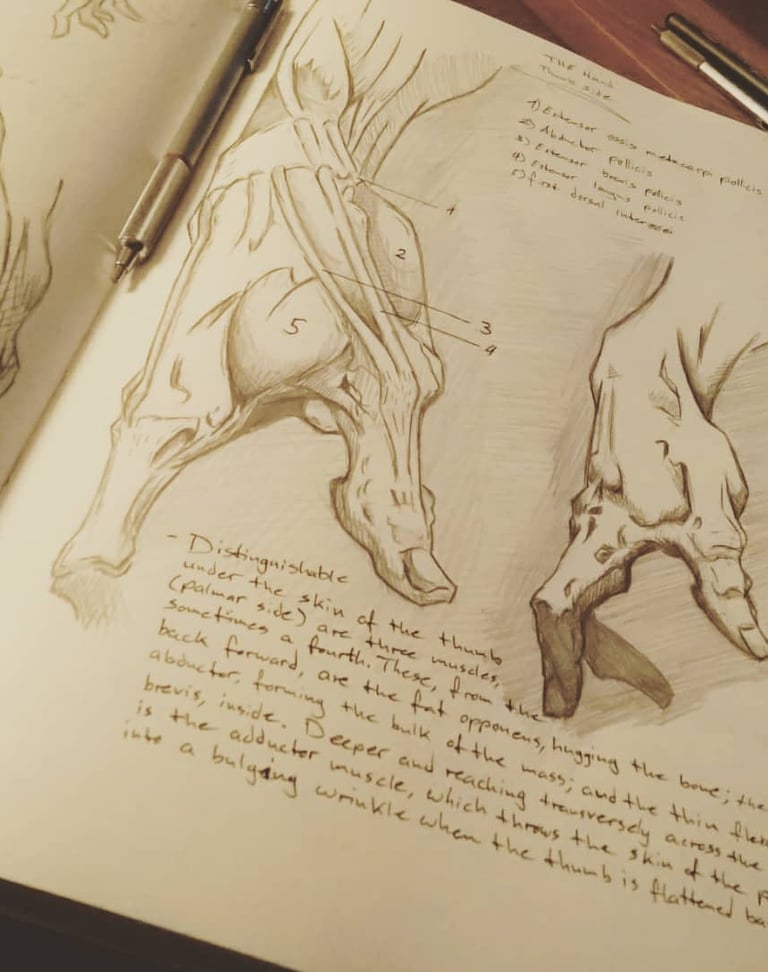 THE Hand
Thumb side
1) Extensor ossis metacarp pollicis
2) Abductor pollicis
3) Extensor brevis pollicis
4) Extensor longus pollicis
5) first dorsal interossei
1
2
3
4
5
- Distinguishable
under the skin of the thumb
(palmar side) are three muscles,
sometimes a fourth. These, from the
back forward, are the fat opponens, hugging the bone; the
abductor, forming the bulk of the mass; and the thin flex
brevis, inside. Deeper and reaching transversely across the
is the adductor muscle, which throws the skin of the p
into a bulging wrinkle when the thumb is flattened ba